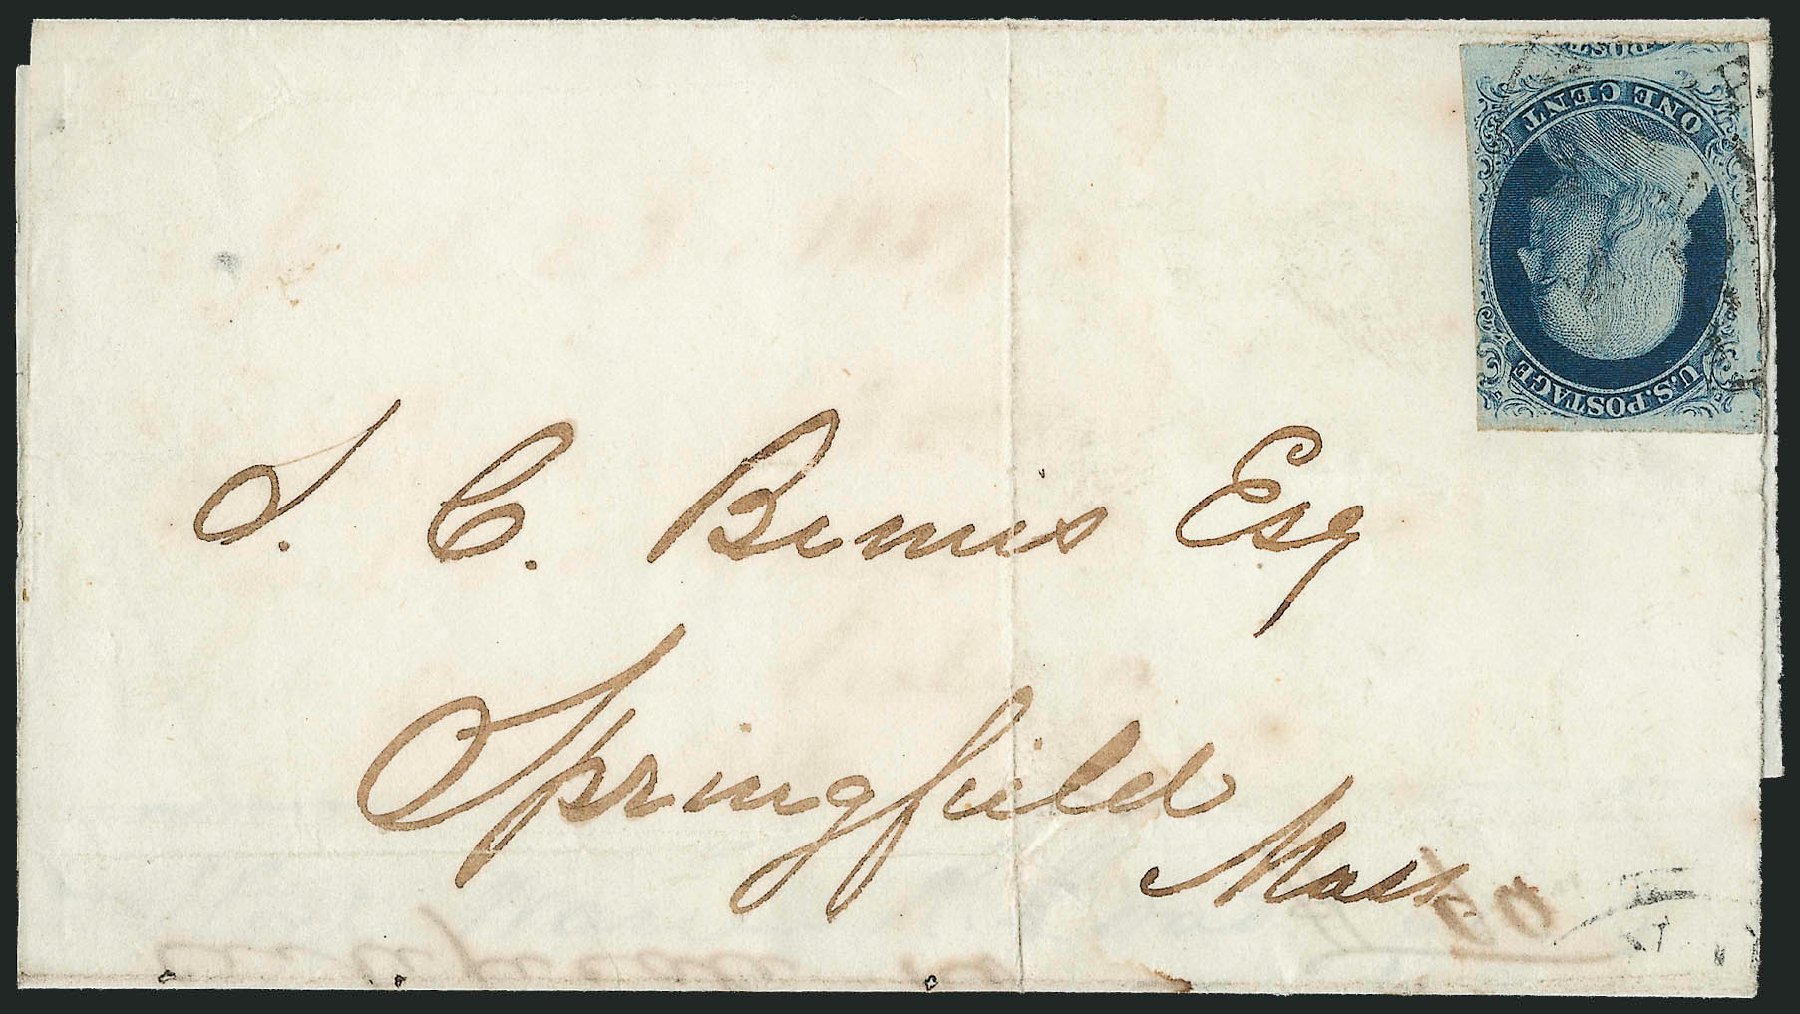 ONE CENT
U.S. POSTAGE
S. C. Bemis Esq
Springfield
Mass